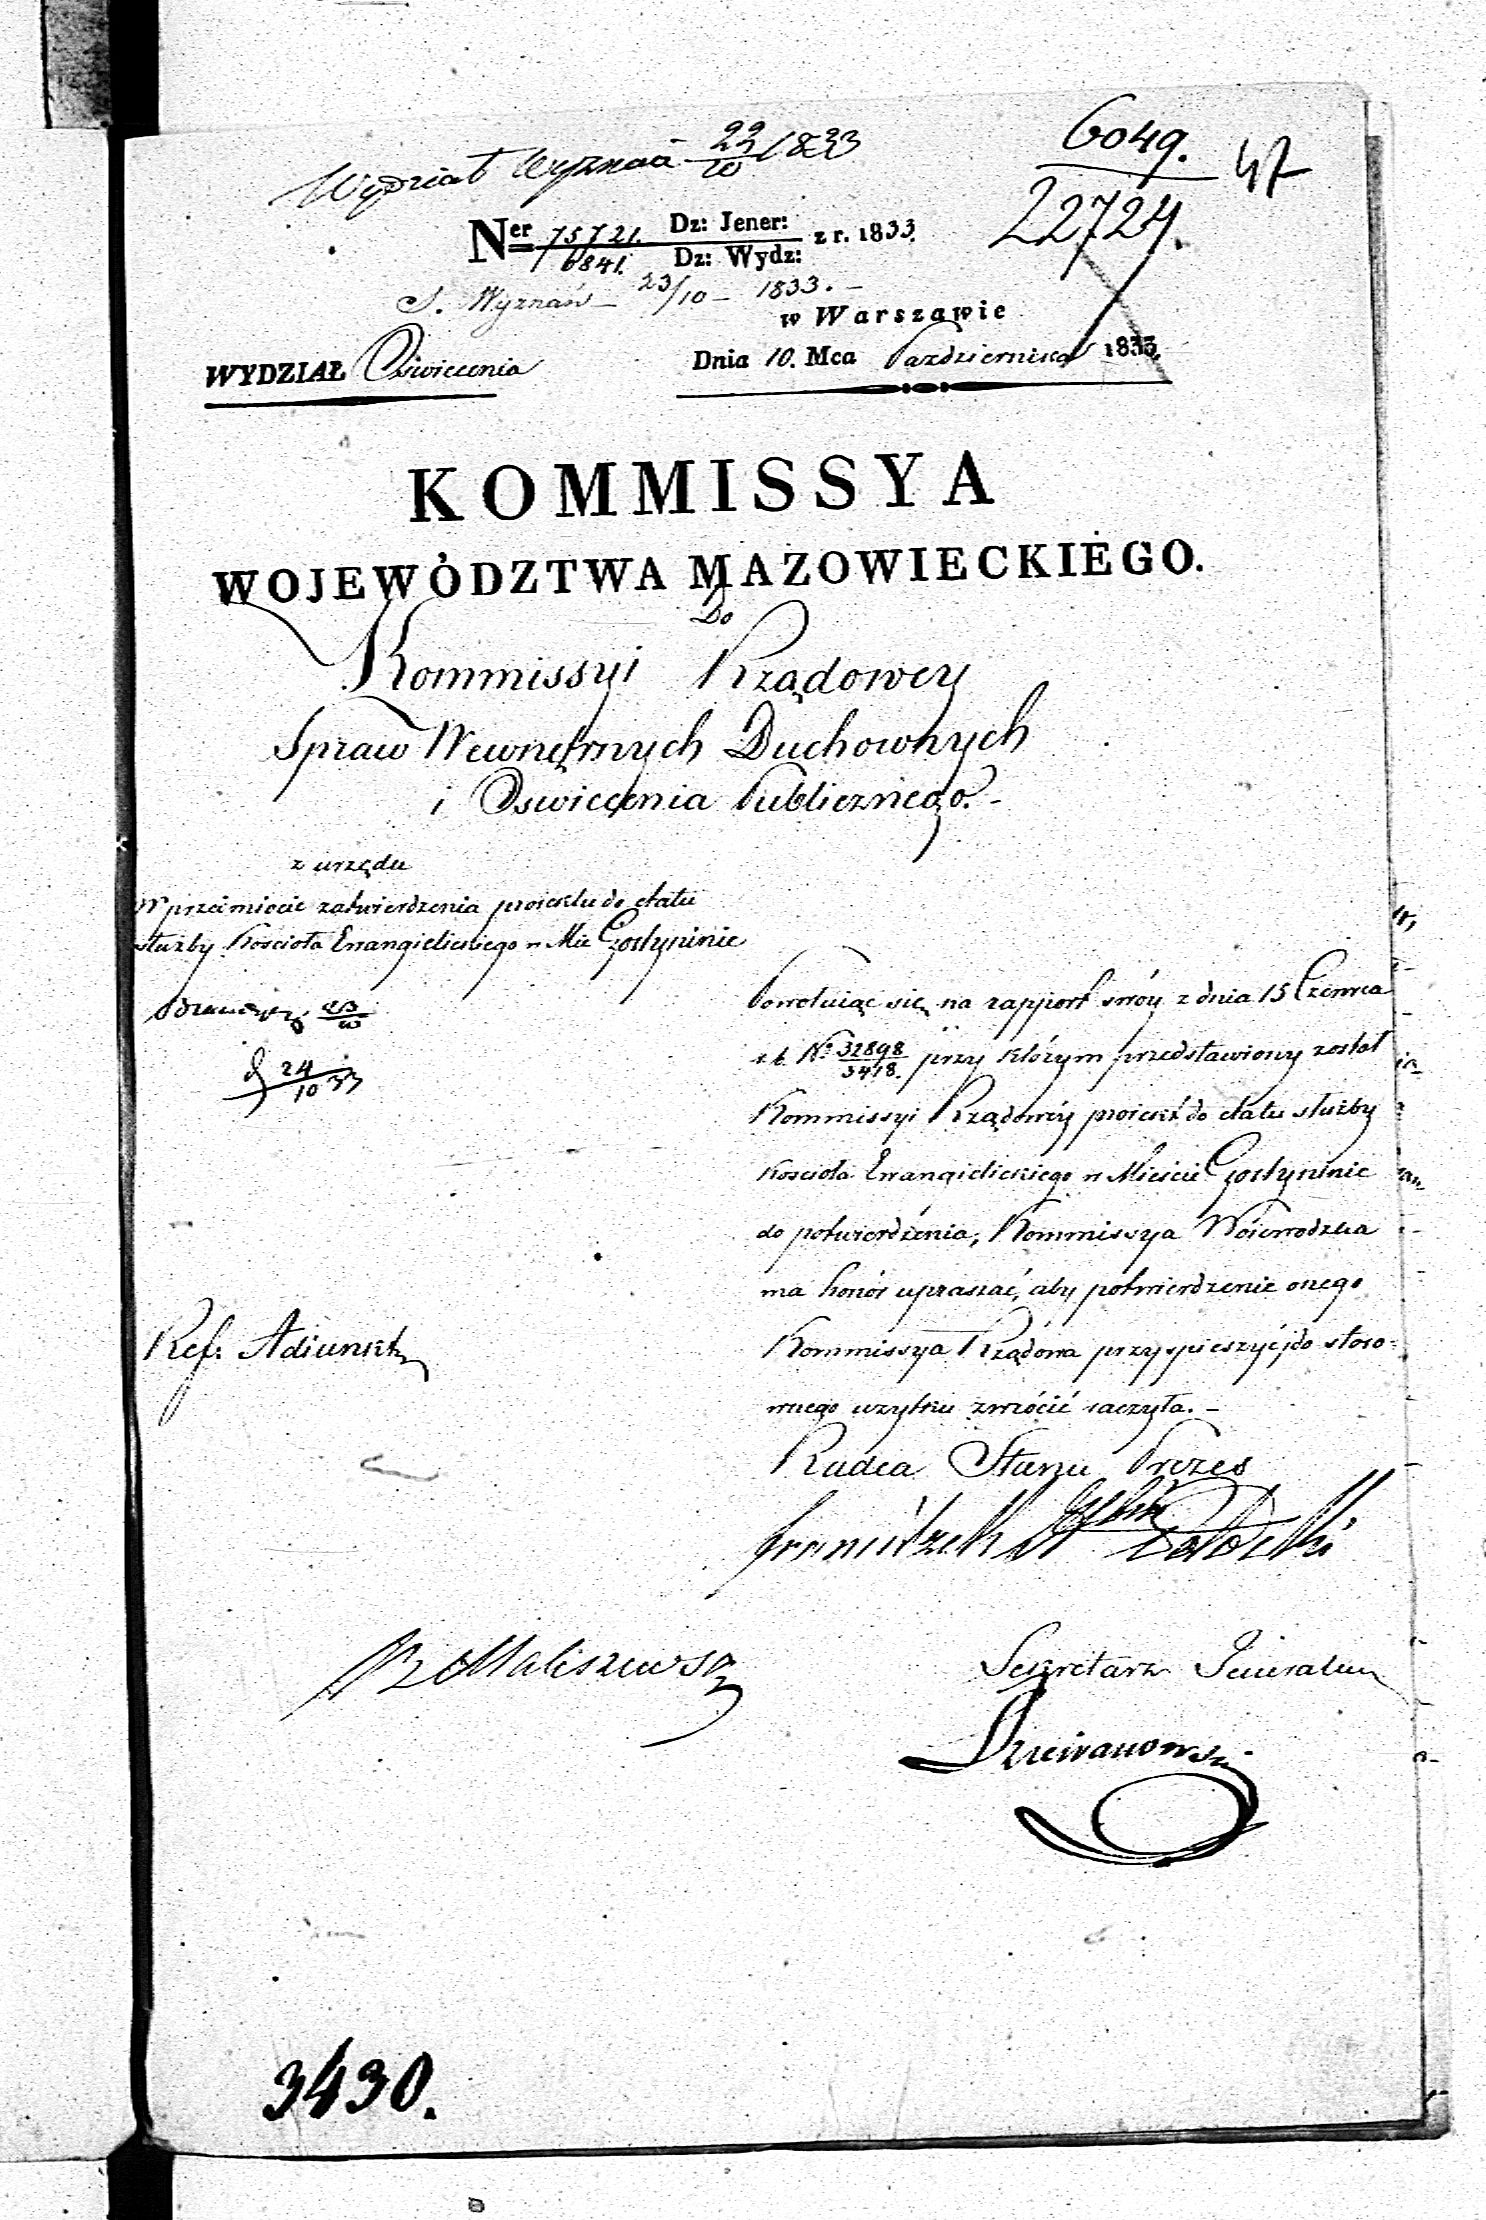 Wydział Wyznań 23/10 1833
6049.
22724.
47
Ner 75721. Dz: Jener: z r. 1833.
6841. Dz: Wydz:
S. Wyznań 23/10 – 1833. –
w Warszawie
WYDZIAŁ Oświecenia
Dnia 10. Mca Października 1833.
KOMMISSYA
WOJEWÓDZTWA MAZOWIECKIEGO.
Do
Kommissyi Rządowey
Spraw Wewnętrznych Duchownych
i Oswiecenia Publicznego. –
z urzędu
W przedmiocie zatwierdzenia proiektu do etatu
służby Kościoła Ewangielickiego w Mie Gostyninie
23/10
24/10 33
Powołuiąc się na rapport swóy z dnia 15 Czerwca
r. b. No 32898/3418. przy którym przedstawiony został
Kommissyi Rządowéy proiekt do etatu służby
Kościoła Ewangielickiego w Mieście Gostyninie
do potwierdzenia, Kommissya Wóiewodzka
ma honór upraszać, aby potwierdzenie onego
Kommissya Rządowa przyspieszyć, i do stoso-
wnego użytku zwrócić raczyła. –
Ref: Adiunkt
Radca Stanu Prezes
Franciszek Potocki
Maliszewski
Sekretarz Jeneralny
Dziewanowski
3430.